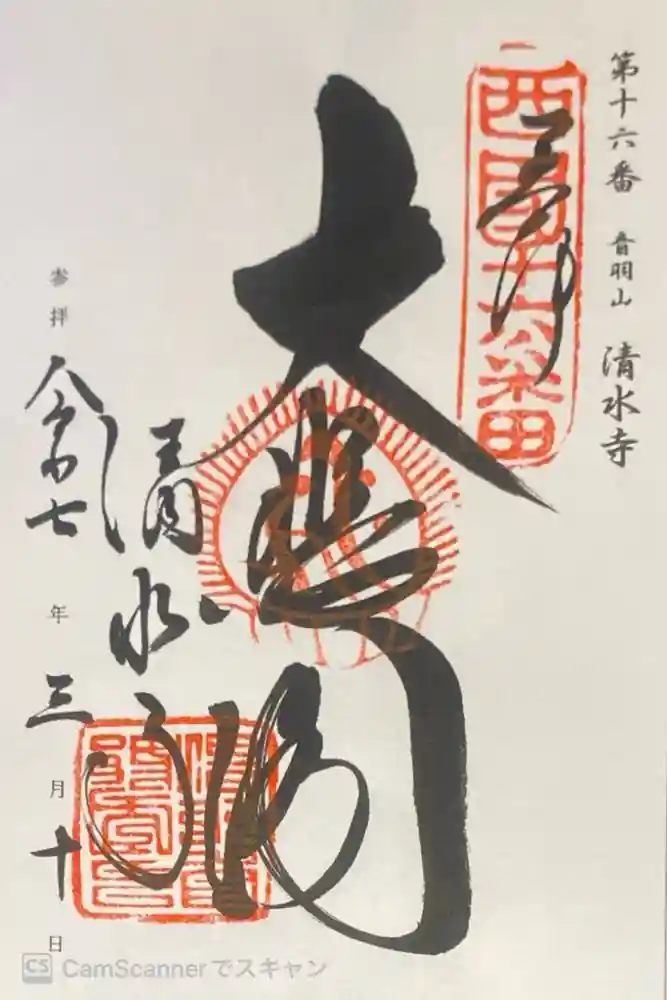 第十六番 音羽山 清水寺
奉拝
西國十六番
大悲閣
清水寺
参拝 令和七年三月十日
CS CamScannerでスキャン